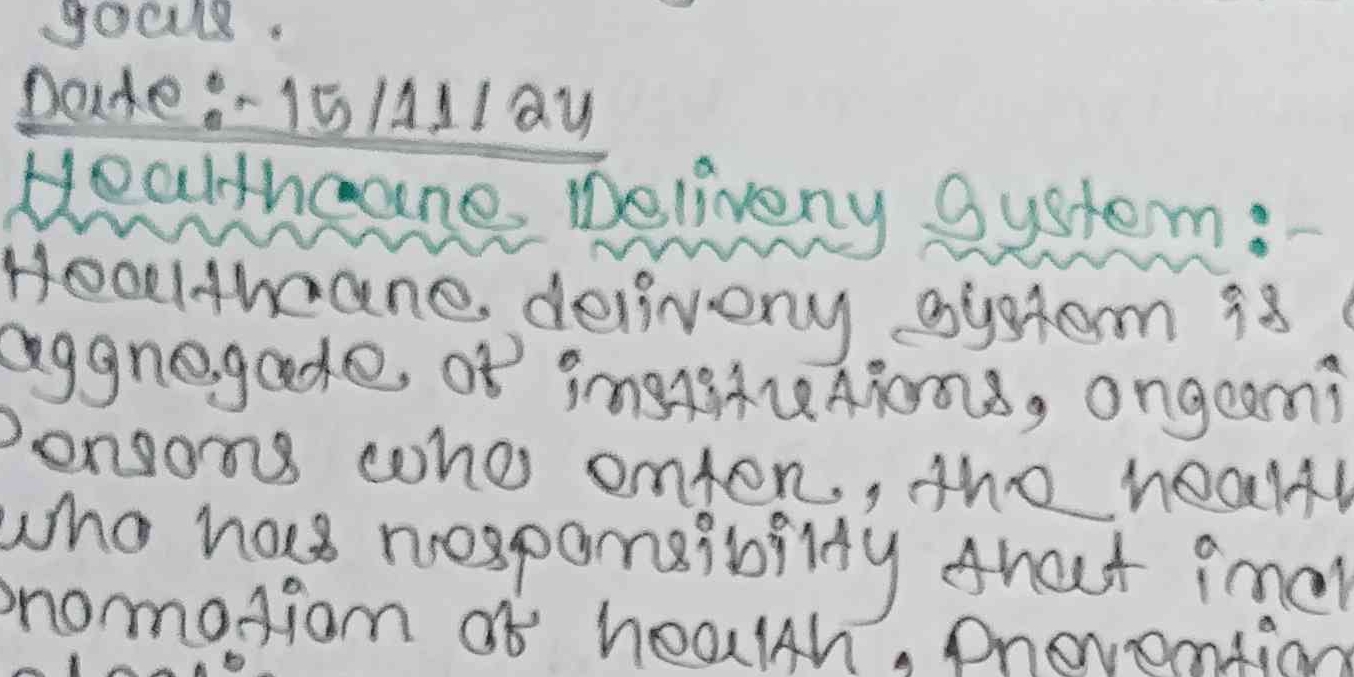 goals.
Date:- 15/11/24
Healthcare Delivery System:-
Healthcare delivery system is
aggregate of institutions, organi
Persons who enter, the health
who has responsibility that incl
promotion of health, Prevention